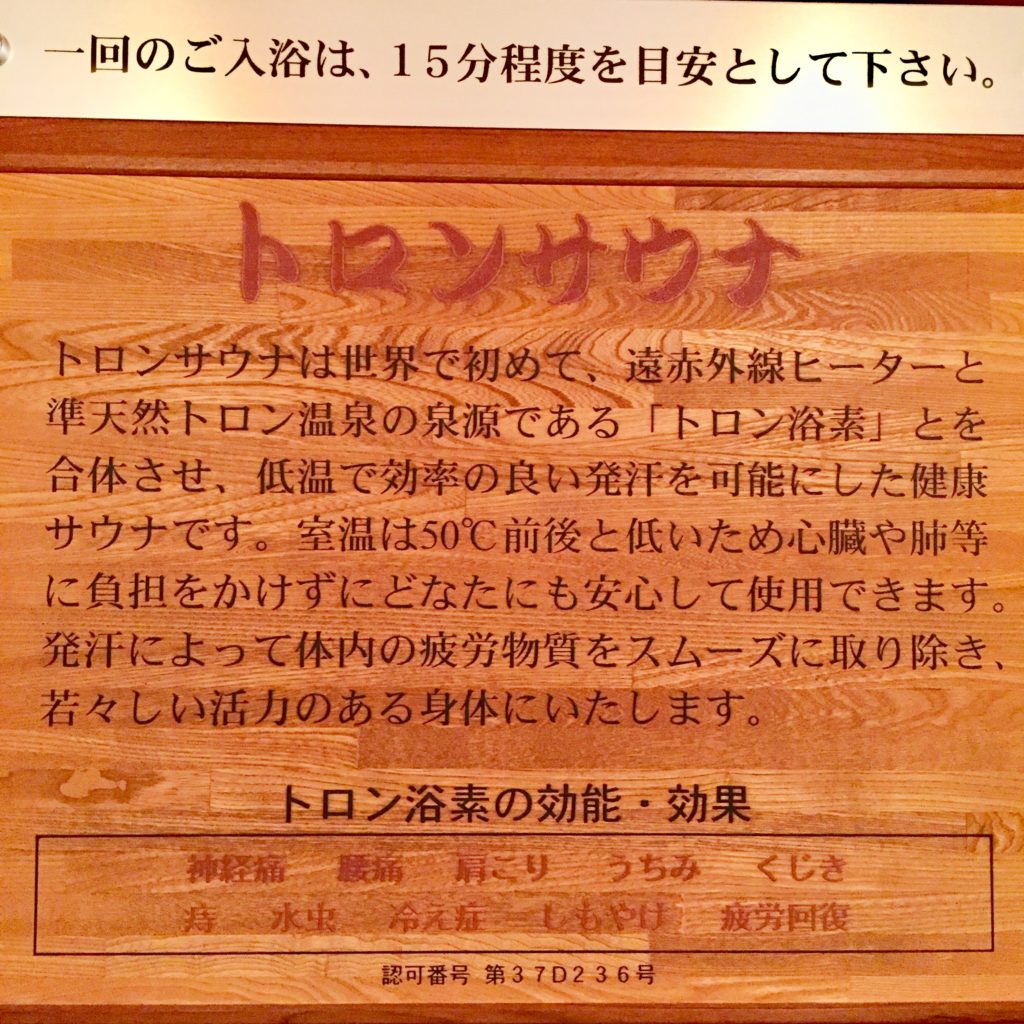 一回のご入浴は、１５分程度を目安として下さい。
トロンサウナ
トロンサウナは世界で初めて、遠赤外線ヒーターと
準天然トロン温泉の泉源である「トロン浴素」とを
合体させ、低温で効率の良い発汗を可能にした健康
サウナです。室温は50℃前後と低いため心臓や肺等
に負担をかけずにどなたにも安心して使用できます。
発汗によって体内の疲労物質をスムーズに取り除き、
若々しい活力のある身体にいたします。
トロン浴素の効能・効果
神経痛 腰痛 肩こり うちみ くじき
痔 水虫 冷え症 しもやけ 疲労回復
認可番号 第３７Ｄ２３６号